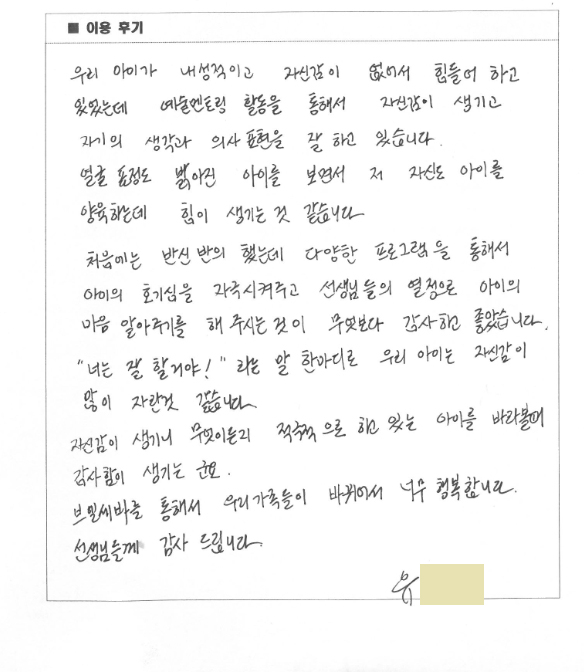 ■ 이용 후기
우리 아이가 내성적이고 자신감이 없어서 힘들어 하고
있었는데 예술멘토링 활동을 통해서 자신감이 생기고
자기의 생각과 의사표현을 잘 하고 있습니다.
얼굴 표정도 밝아진 아이를 보면서 저 자신도 아이를
양육하는데 힘이 생기는 것 같습니다
처음에는 반신반의 했는데 다양한 프로그램을 통해서
아이의 호기심을 자극시켜주고 선생님들의 열정으로 아이의
마음 알아주기를 해 주시는것이 무엇보다 감사하고 좋았습니다.
"너는 잘 할거야!" 라는 말 한마디로 우리 아이는 자신감이
많이 자란것 같습니다
자신감이 생기니 무엇이든지 적극적으로 하고 있는 아이를 바라볼때
감사함이 생기는 군요.
브밀세바를 통해서 우리가족들이 바뀌어서 너무 행복합니다.
선생님들께 감사 드립니다.
유